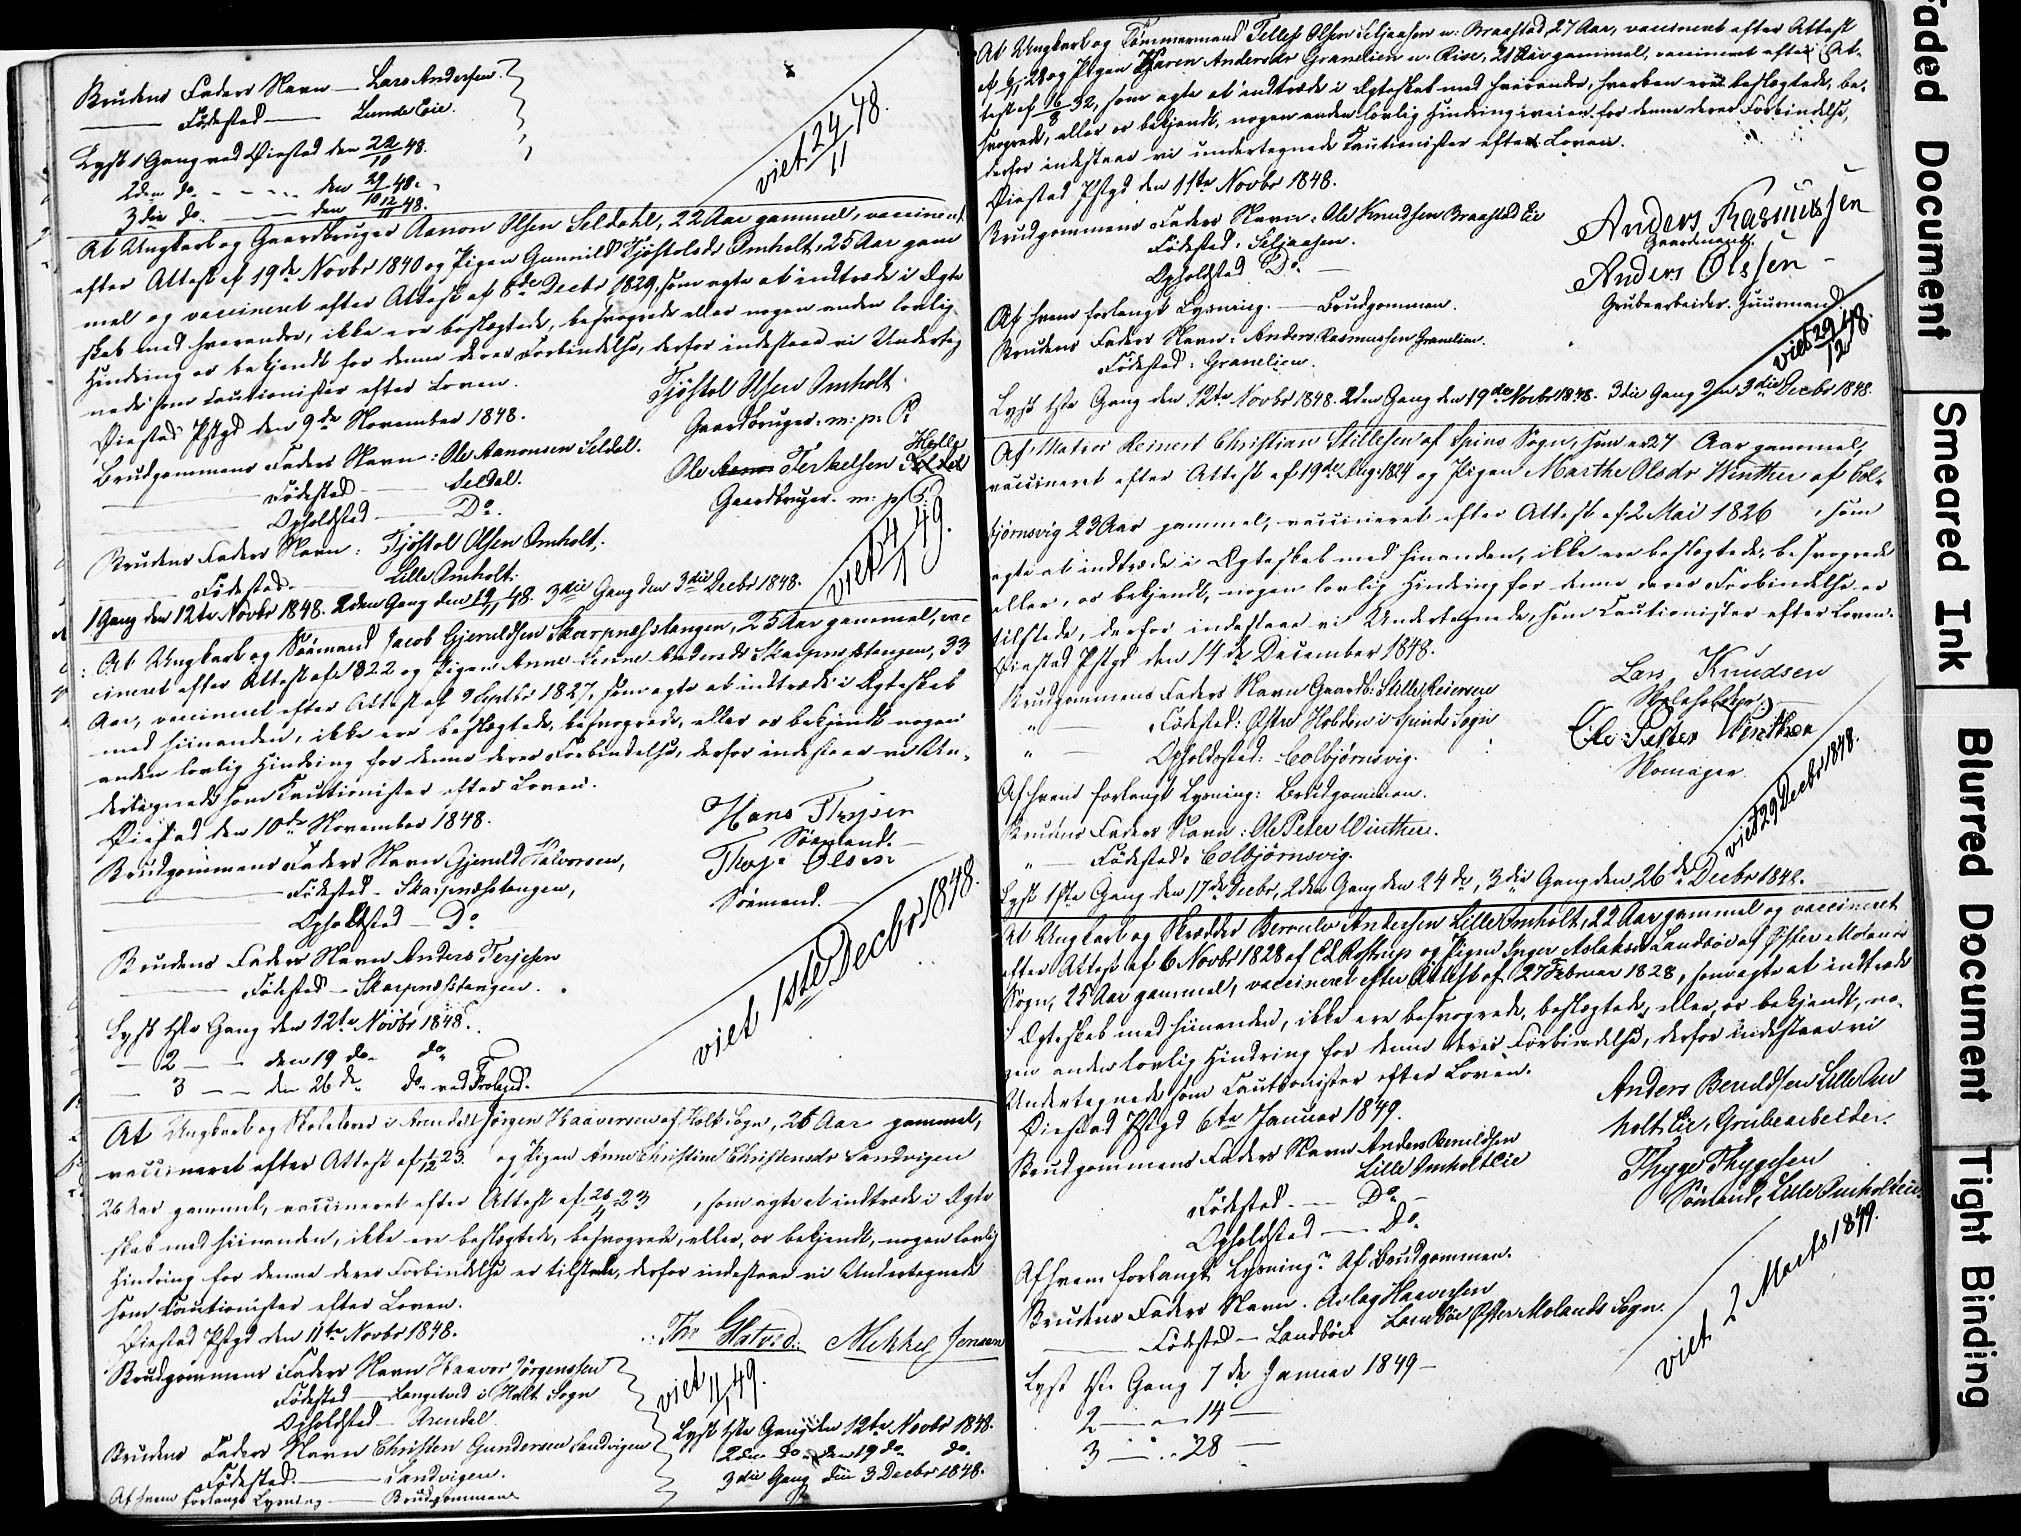 Brudens Faders Navn — Lars Andersen.
Fødested — Lunde Eie.
Lyst 1 Gang ved Øiestad den 22/10 48.
2den do. — den 29/10 48.
3die do. — den 12/11 48.
viet 24/11 48.
At Ungkarl og Gaardbruger Aanon Olsen Seldahl, 22 Aar gammel, vaccineret
efter Attest af 19de Novbr 1840 og Pigen Gunnild Tjøstolsdr Omholt, 25 Aar gam
mel og vaccineret efter Attest af 8de Decbr 1829, som agte at indtræde i Ægte
skab med hverandre, ikke ere beslægtede, besvogrede eller nogen anden lovlig
Hindring er bekjendt for denne deres Forbindelse, derfor indestaae vi Underteg
nede som Cautionister efter Loven.
Øiestad Pstgd den 9de November 1848.
Tjøstol Olsen Omholt.
Gaardbruger. m: p: P:
Brudgommens Faders Navn: Ole Aanonsen Seldal.
Ole Terkelsen Helle
Fødested — Seldal.
Gaardbruger. m: p: P.
Opholdsted — Do.
Brudens Faders Navn: Tjøstol Olsen Omholt.
Fødested — Lille Omholt.
viet 4/1 49.
1 Gang den 12te Novbr 1848. 2den Gang den 19/11 48. 3die Gang den 3die Decbr 1848.
At Ungkarl og Sømand Jacob Gjeruldsen Skarpnæsstangen, 25 Aar gammel, vac
cineret efter Attest af 1822 og Pigen Anne Andersdr Skarpnæsstangen, 33
Aar, vaccineret efter Attest af 9 Septbr 1827, som agte at indtræde i Ægteskab
med hinanden, ikke ere beslægtede, besvogrede, eller er bekjendt nogen
anden lovlig Hindring for denne deres Forbindelse, derfor indestaae vi Un-
dertegnede som Cautionister efter Loven.
Øiestad den 10de November 1848.
Hans Thysen
Sømand.
Brudgommens Faders Navn Gjeruld Halvorsen,
Therje Olsen
Fødested — Skarpnæsstangen,
Sømand.
Opholdsted — Do
Brudens Faders Navn Anders Terjesen
Fødested — Skarpnæsstangen.
Lyst 1ste Gang den 12te Novbr 1848.
— 2 — den 19 do. do.
— 3 — den 26 do. do. ved Froland.
viet 1ste Decbr 1848.
At Ungkarl og Skolelærer i Arendal Jørgen Haaversen af Holt Sogn, 26 Aar gammel,
vaccineret efter Attest af 1/12 23. og Pigen Anne Christine Christensdr Sandvigen
26 Aar gammel, vaccineret efter Attest af 26/11 23, som agte at indtræde i Ægte
skab med hinanden, ikke ere beslægtede, besvogrede, eller, er bekjendt, nogen lovlig
Hindring for denne deres Forbindelse er tilstede, derfor indestaae vi Undertegnede
som Cautionister efter Loven.
Øiestad Pstgd den 11te Novbr 1848.
Mikkel Jensen
Brudgommens Faders Navn Haaver Jørgenssen
viet 11/1 49.
Fødested — Langetved i Holt Sogn
Opholdsted — Arendal.
Brudens Faders Navn Christen Gundersen Sandvigen
Fødested. — Sandvigen.
Af hvem forlangt Lysning — Brudgommen
Lyst 1ste Gang den 12te Novbr 1848.
2den Do. den 19 do. do.
3die Gang den 3 Decbr 1848.
At Ungkarl og Tømmermand Tellef Olsen Seljaasen u: Braastad, 27 Aar, vaccineret efter Attest
af 28 og Pigen Karen Andersdr Granelien u: Rise, 21 Aar gammel, vaccineret efter At-
test af 16/8 32, som agte at indtræde i Ægteskab med hverandre, hverken ere beslægtede, be-
svogrede, eller er bekjendt, nogen anden lovlig Hindring iveien for denne deres Forbindelse,
derfor indestaae vi undertegnede Cautionister efter Loven.
Øiestad Pstgd den 11te Novbr 1848.
Brudgommens Faders Navn: Ole Knudsen Braastad Eie
Anders Rasmussen
Gaardmand.
Fødested: Seljaasen.
Anders Olssen
Opholdsted Do.
Grubearbeider. Huusmand
Af hvem forlangt Lysning. — Brudgommen.
Brudens Faders Navn: Anders Rasmussen Granelien.
Fødested: Granelien.
viet 29/12 48.
Lyst 1ste Gang den 12te Novbr 1848. 2den Gang den 19de Novbr 1848. 3die Gang den 3die Decbr 1848.
At Matros Reinert Christian Stillesen af Spins Sogn, som er 27 Aar gammel,
vaccineret efter Attest af 19de Aug. 1824 og Pigen Marthe Olsdr Winther af Col-
bjørnsvig 23 Aar gammel, vaccineret efter Attest af 2 Mai 1826, som
agte at indtræde i Ægteskab med hinanden, ikke ere beslægtede, besvogrede
eller, er bekjendt, nogen lovlig Hindring for denne deres Forbindelse er
tilstede, derfor indestaae vi Undertegnede, som Cautionister efter Loven.
Øiestad Pstgd den 14de December 1848.
Lars Knudsen
Skoleholder
Brudgommens Faders Navn Gaardb: Stille Reiersen
" — Fødested: Østre Hobden i Spinds Sogn
Ole Petter Winther
" — Opholdssted: Colbjørnsvig.
Skomager.
Af hvem forlangt Lysning: Brudgommen.
Brudens Faders Navn: Ole Peter Winther.
" — Fødested: Colbjørnsvig.
viet 29 Decbr 1848.
Lyst 1ste Gang den 17de Decbr, 2den Gang den 24de, 3die Gang den 26de Decbr 1848.
At Ungkarl og Skrædder Berould Andersen Lille Omholt, 22 Aar gammel og vaccineret
efter Attest af 6 Novbr 1828 af Rostrup og Pigen Inger Aslaksdr Landbøe af Øster Molands
Sogn, 25 Aar gammel, vaccineret efter Attest af 27 Februar 1828, som agte at indtræde
i Ægteskab med hinanden, ikke ere besvogrede, beslægtede, eller, er bekjendt, no-
gen anden lovlig Hindring for denne deres Forbindelse, derfor indestaae vi
Undertegnede som Cautionister efter Loven.
Øiestad Pstgd 6te Januar 1849.
Anders Beruldsen Lille Om
holt Eie, Grubearbeider.
Brudgommens Faders Navn Anders Beruldsen
Lille Omholt Eie
Thyge Thygesen
Sømand, Lille Omholt Eie.
Fødested. — Do.
Opholdsted — Do.
Af hvem forlangt Lysning? Af Brudgommen.
Brudens Faders Navn. Aslag Haaversen
Fødested — Landbøe Landbøe Øster Molands Sogn.
viet 2 Marts 1849.
Lyst 1ste Gang 7de Januar 1849 —
2 — " 14 —
3 — " 28 —
Faded Document
Smeared Ink
Blurred Document
Tight Binding